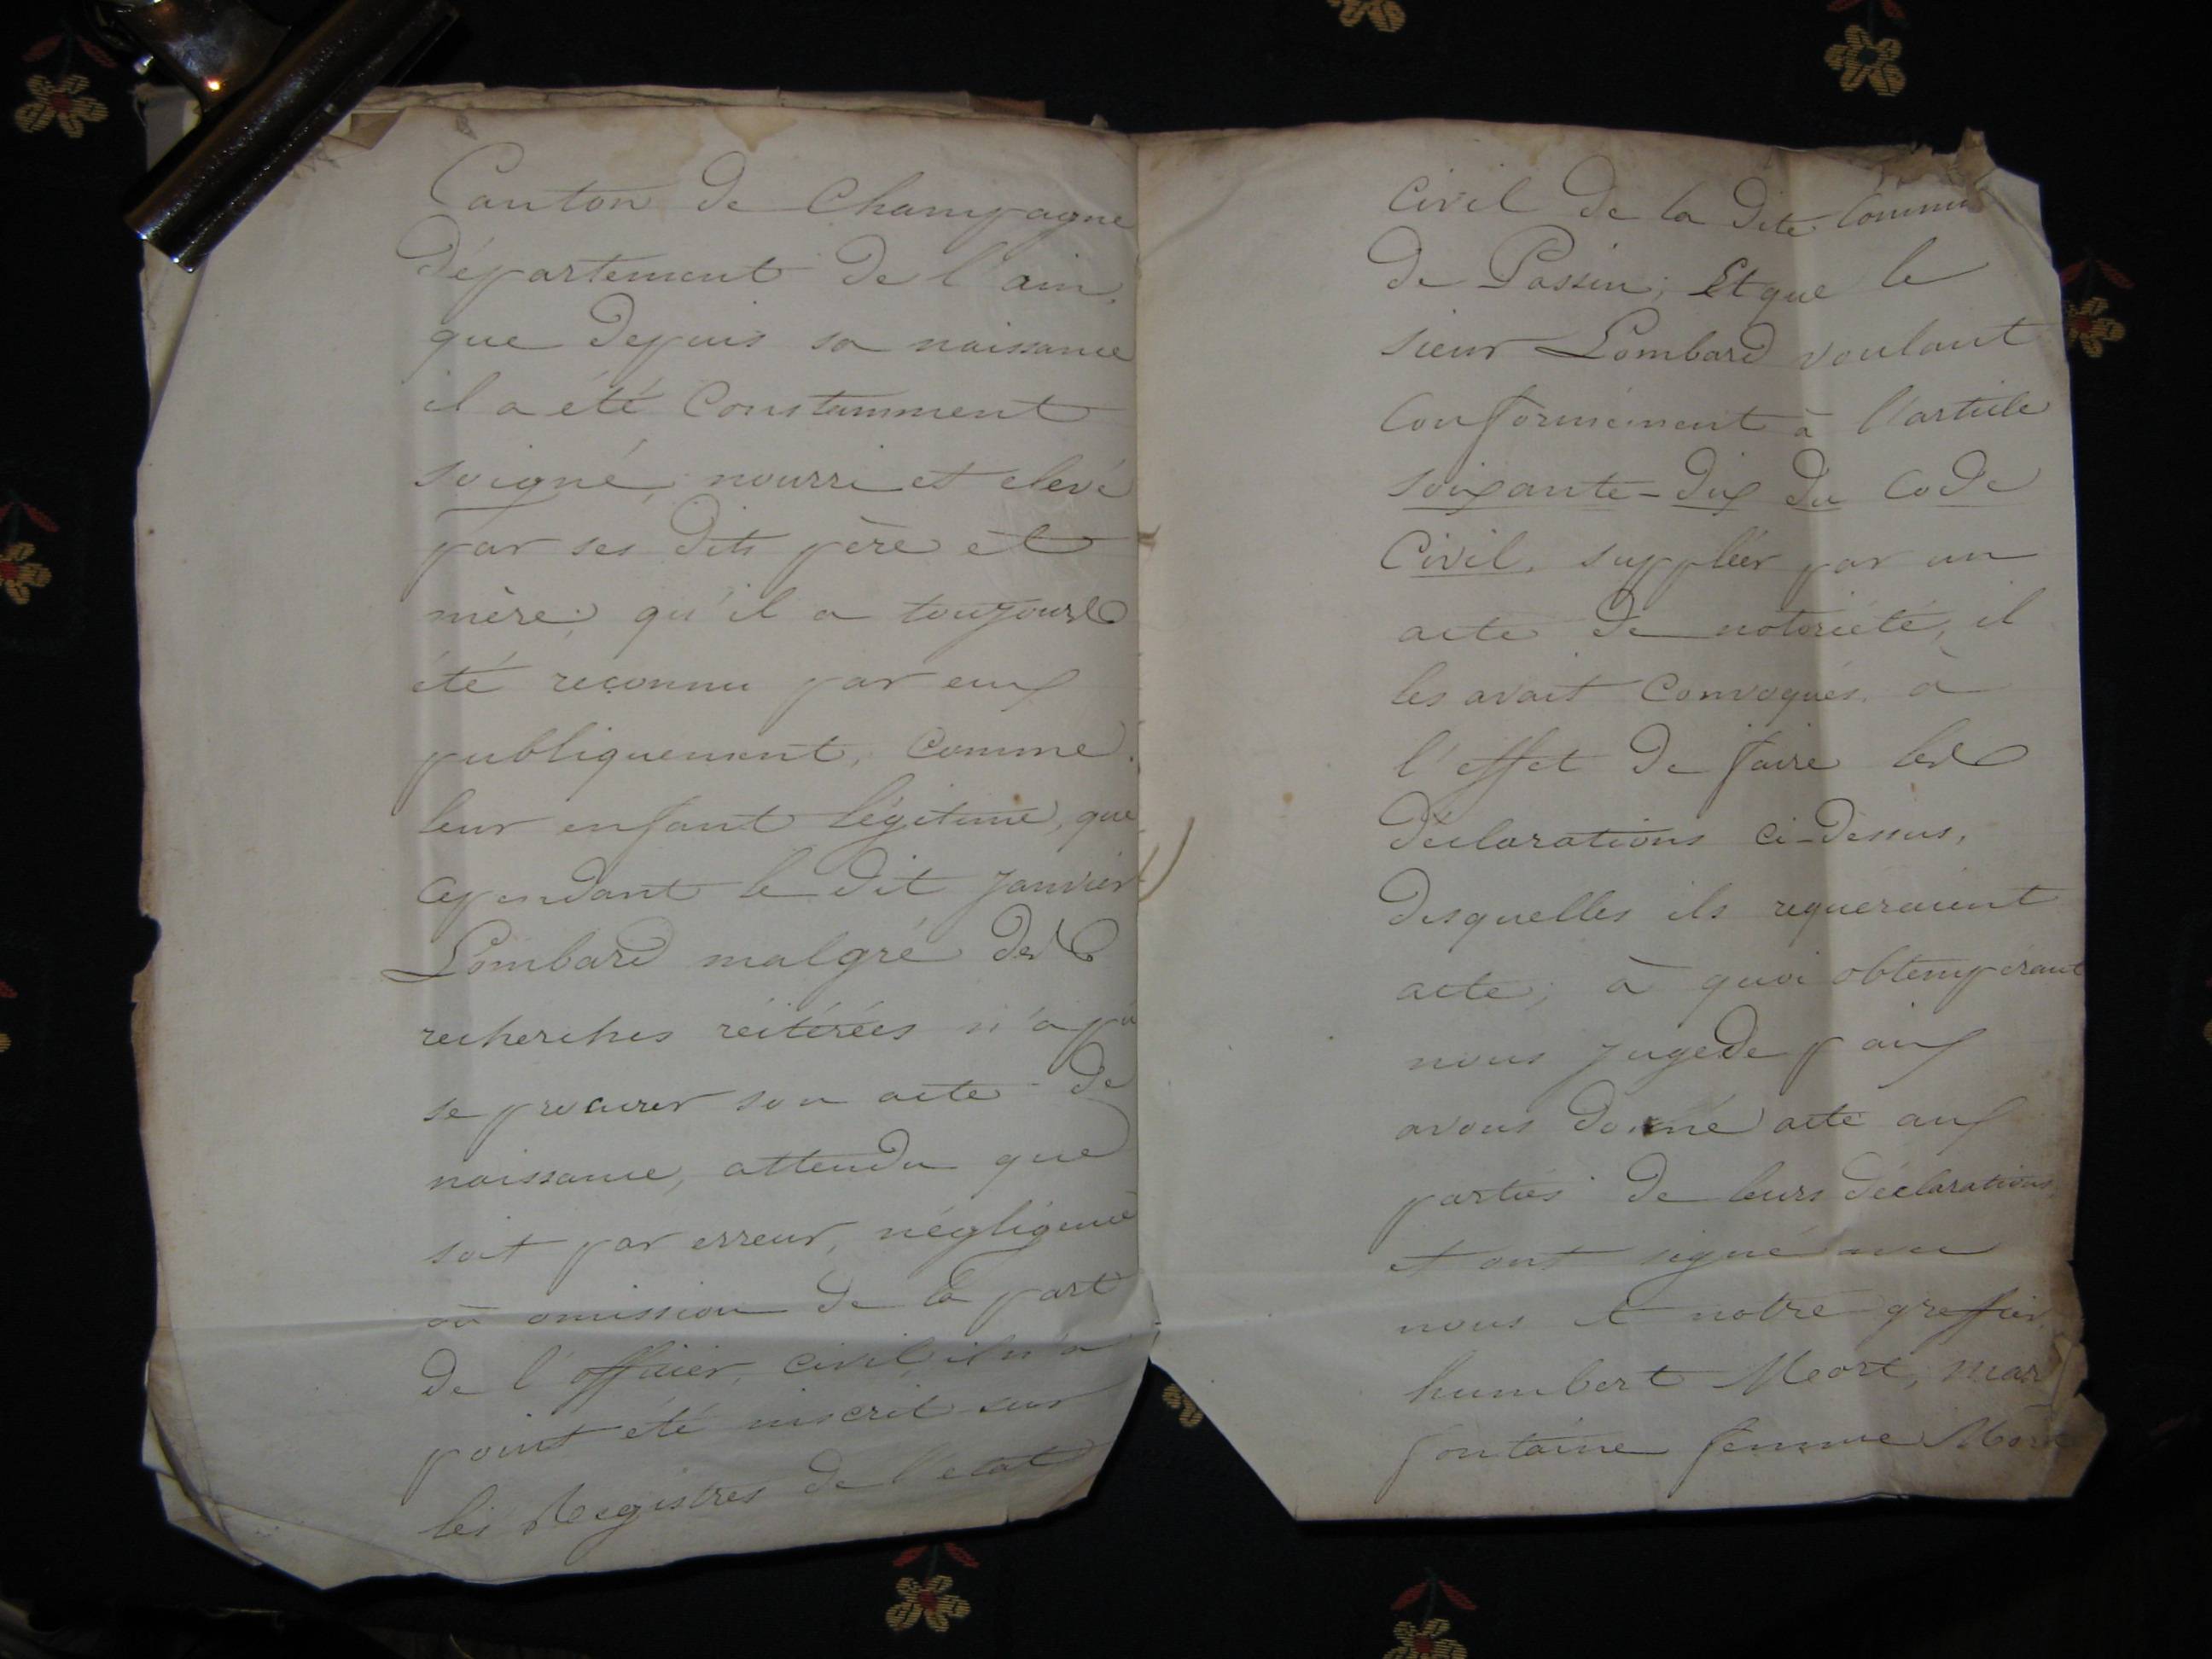 Canton de Champagne
département de l'ain,
que depuis sa naissance
il a été Constamment
soigné, nourri et elevé
par ses dits père et
mère; qu'il a toujours
été reconnu par eux
publiquement, Comme
leur enfant légitime, que
cependant le dit Janvier
Lombard malgré des
recherches réitérées n'a pu
se procurer son acte de
naissance, attendu que
soit par erreur, négligence
ou omission de la part
de l'officier, civil, il n'a
point été inscrit sur
les Registres de l'etat
Civil de la dite Commu
de Passin; Et que le
sieur Lombard voulant
Conformément à l'article
soixante-dix du Code
Civil, suppléer par un
acte de notoriété, il
les avait Convoqués à
l'effet de faire les
déclarations ci-dessus,
desquelles ils requeraient
acte; à quoi obtempérant
nous Juge de paix
avons donné acte aux
parties de leurs déclarations
et ont signé avec
nous et notre greffier,
humbert Meort, mar
fontaine femme